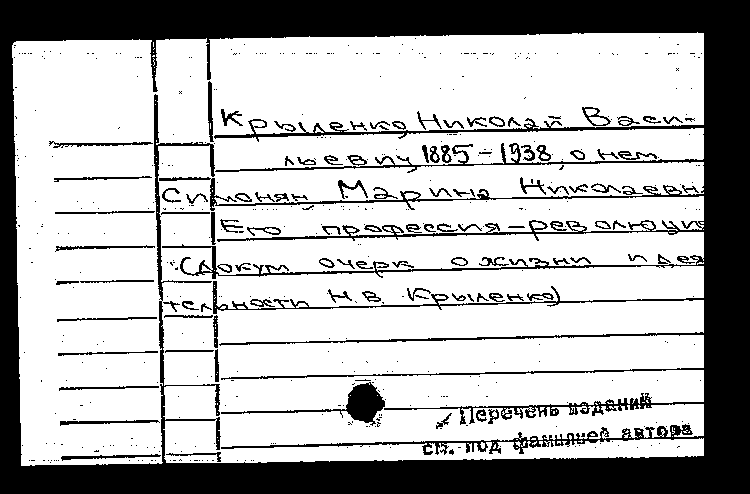 Крыленко, Николай Васи-
льевич, 1885-1938, о нем
Симонян, Марина Николаевна
Его профессия-революция
(Докум очерк о жизни и дея
тельности Н.В. Крыленко)
Перечень изданий
см. под фамилией автора